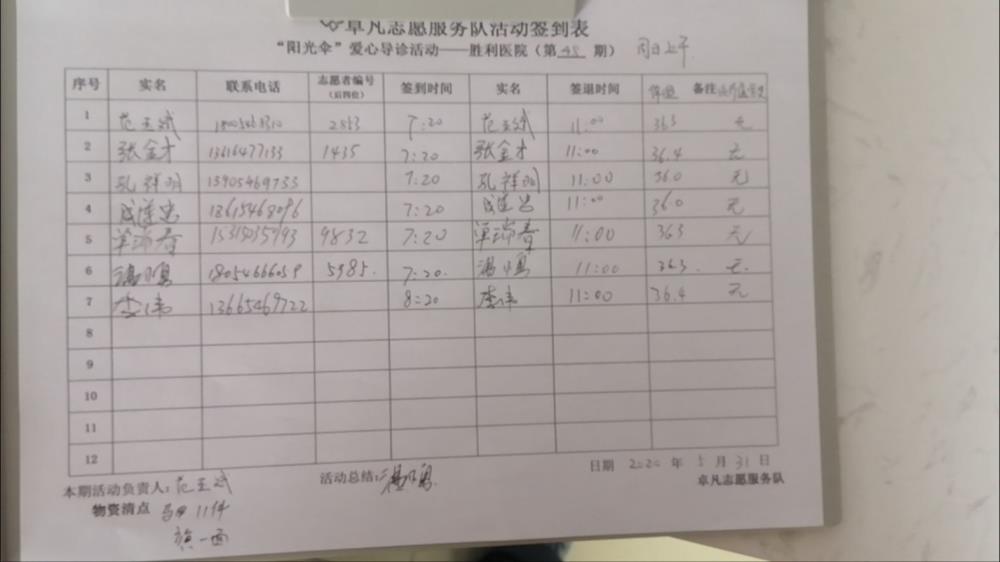 卓凡志愿服务队活动签到表
“阳光伞”爱心导诊活动——胜利医院（第45期） 周日上午
序号 实名 联系电话 志愿者编号（后四位） 签到时间 实名 签退时间 体温 备注
1 范玉斌 2553 7:20 范玉斌 11:00 363 无
2 张金才 13616477133 1435 7:20 张金才 11:00 36.4 无
3 孔祥明 13905469733 7:20 孔祥明 11:00 360 无
4 成莲忠 13615468096 7:20 成莲忠 11:00 360 无
5 单瑞春 9832 7:20 单瑞春 11:00 363 无
6 18054666059 5985. 7:20. 11:00 363. 无.
7 李伟 13665469722 8:20 李伟 11:00 36.4 无
8
9
10
11
12
日期 2020 年 5 月 31 日
本期活动负责人：范玉斌 活动总结： 卓凡志愿服务队
物资清点 马甲 11件
旗一面